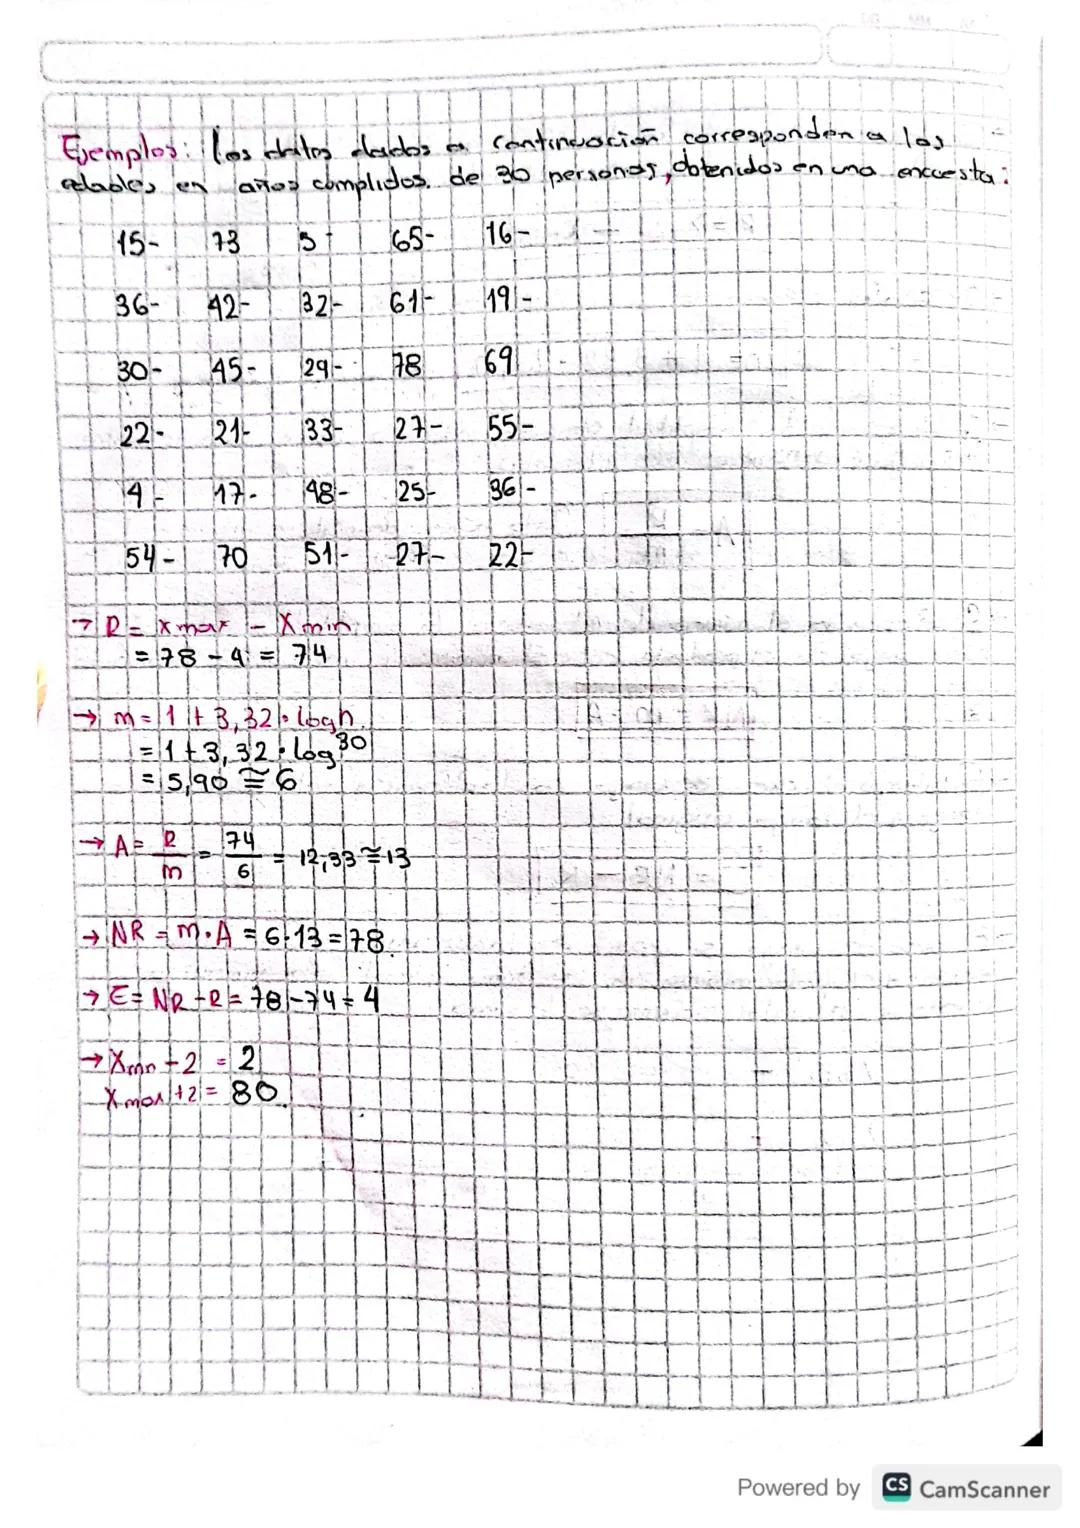 Ejemplos: Los datos dados a continuación corresponden a las
edades en años cumplidos. de 30 personas, obtenidos en una encuesta:
15- 73 5- 65- 16-
36- 42- 32- 61- 19-
30- 45- 29- 78 69
22- 21- 33- 27- 55-
4- 17- 48- 25- 36-
54- 70 51- 27- 22-
→ R = Xmax - Xmin
= 78 - 4 = 74
→ m = 1 + 3,32 · logn
= 1 + 3,32 · log 30
= 5,90 ≅ 6
→ A = R/m = 74/6 = 12,33 ≅ 13
→ NR = m · A = 6·13 = 78
→ E = NR - R = 78 - 74 = 4
→ Xmn - 2 = 2
Xmax + 2 = 80
Powered by CS CamScanner